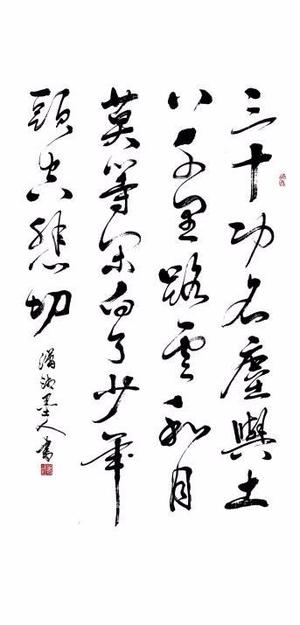 三十功名塵與土
八千里路雲和月
莫等閑白了少年
頭空悲切
瀟湘墨人書